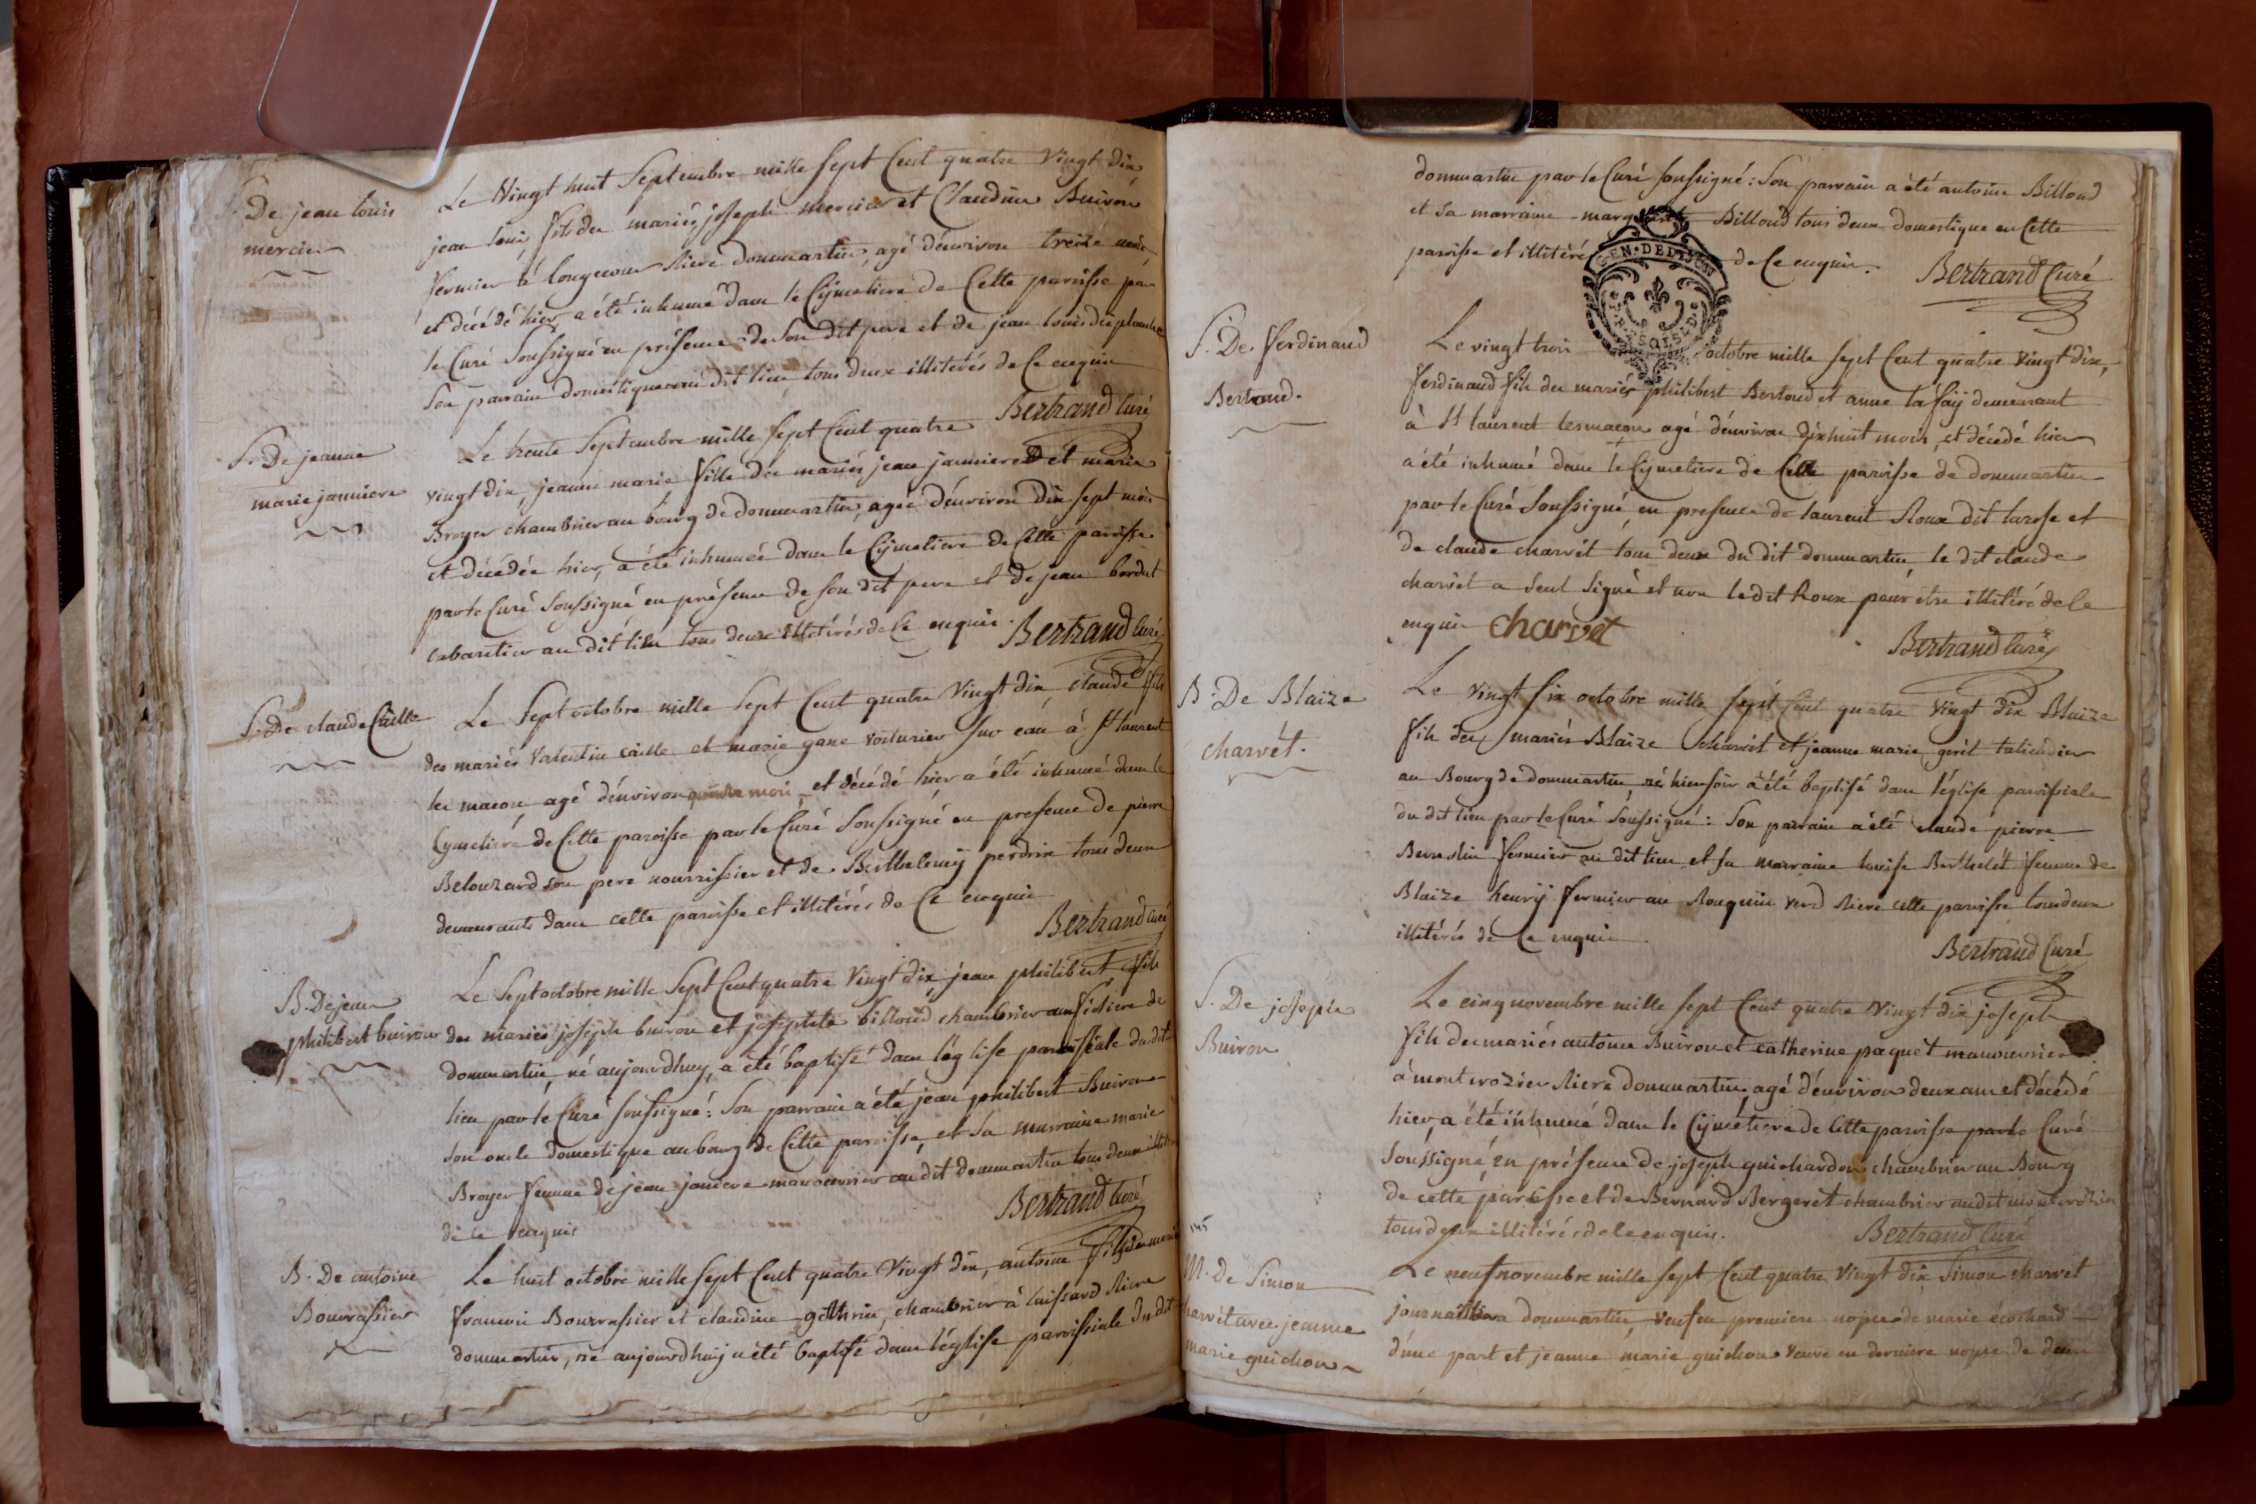 S. De jean louis
mercier
Le vingt huit Septembre mille sept Cent quatre vingt dix
jean louis fils des mariés joseph mercier et Claudine Buiron
fermier à longecour Riere dommartin, agé d'environ treize mois,
et décédé hier a été inhumé dans le Cymetiere de Cette paroisse par
le Curé Soussigné en présence de Son dit pere et de jean louis
Son parrain domestique au dit lieu tous deux illitérés de Ce enquis
Bertrand Curé
S. De jeanne
marie janniere
Le trente Septembre mille sept Cent quatre
vingt dix, jeanne marie fille des mariés jean janniere et marie
Broyer chambrier au bourg de dommartin, agée d'environ dix sept mois
et décédée hier, a été inhumée dans le Cymetiere de Cette paroisse
par le Curé Soussigné en présence de son dit pere et de jean bordat
cabaretier au dit lieu tous deux illitérés de Ce enquis.
Bertrand Curé
S. De claude Caille
Le Sept octobre mille Sept Cent quatre vingt dix claude fils
des mariés valentin caille et marie gane voiturier sur eau à St laurent
les macon, agé d'environ quinze mois, et décédé hier a été inhumé dans le
Cymetiere de Cette paroisse par le Curé Soussigné en presence de pierre
Belouzard son pere nourrissier et de Barthelemy perdrix tous deux
demeurants dans cette paroisse et illitérés de Ce enquis
Bertrand Curé
B. De jean
philibert buiron
Le Sept octobre mille Sept Cent quatre vingt dix, jean philibert fils
des mariés joseph buiron et josephte billoud chambrier aux Riere
dommartin, né aujourdhuy, a été baptisé dans l'église paroissiale du dit
lieu par le Curé soussigné: Son parrain a été jean philibert Buiron
son oncle domestique au bourg de Cette paroisse, et sa marraine marie
Broyer femme de jean janiere manouvrier au dit dommartin tous deux illitérés
de ce enquis
Bertrand Curé
B. De antoine
Bourrassier
Le huit octobre mille sept Cent quatre vingt dix, antoine fils des mariés
francois Bourrassier et claudine guthrin, chambrier à luissard Riere
dommartin, né aujourdhuy a été baptisé dans l'église paroissiale du dit
dommartin par le Curé soussigné: Son parrain a été antoine Billoud
et sa marraine marguerite Billoud tous deux domestique en Cette
paroisse et illitérés de Ce enquis.
Bertrand Curé
GEN. DE DIJON
S. De ferdinand
Bertoud.
Le vingt trois octobre mille sept Cent quatre vingt dix,
ferdinand fils des mariés philibert Bertoud et anne lafay demeurant
à St laurent les macon, agé d'environ dixhuit mois, et décédé hier
a été inhumé dans le Cymetiere de Cette paroisse de dommartin
par le Curé Soussigné, en presence de laurent Roux dit larose et
de claude charvet tous deux du dit dommartin, le dit claude
charvet a seul signé et non le dit Roux pour être illitéré de Ce
enquis charvet
Bertrand Curé
B. De Blaize
charvet.
Le vingt six octobre mille sept Cent quatre vingt dix Blaize
fils des mariés Blaize charvet et jeanne marie
au Bourg de dommartin, né hier soir a été baptisé dans l'église paroissiale
du dit lieu par le Curé Soussigné: Son parrain a été claude pierre
fermier au dit lieu et sa marraine louise Berthelet femme de
Blaize henry fermier au Rouquin verd Riere cette paroisse tous deux
illitérés de Ce enquis
Bertrand Curé
S. De joseph
Buiron
Le cinq novembre mille sept Cent quatre vingt dix joseph
fils des mariés antoine Buiron et catherine paquet manouvrier
à montcrozier Riere dommartin, agé d'environ deux ans et décédé
hier, a été inhumé dans le Cymetiere de Cette paroisse par le Curé
Soussigné, en présence de joseph guichardon chambrier au Bourg
de cette paroisse et de Bernard Bergeret chambrier au dit montcrozier
tous deux illitérés de Ce enquis.
Bertrand Curé
M. de Simon
charvet avec jeanne
marie guichon
Le neuf novembre mille sept Cent quatre vingt dix Simon charvet
journallier a dommartin, veuf en premiere nopce de marie écochard
d'une part et jeanne marie guichon veuve en derniere nopce de